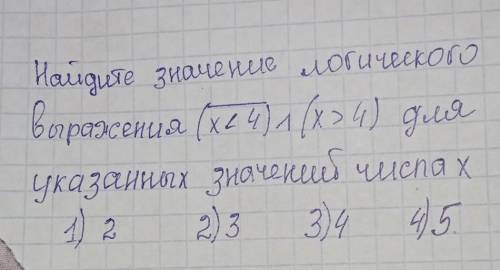 Найдите значение логического
выражения (x̅ ̅<̅ ̅4̅) ∧ (x > 4) для
указанных значений числа x
1) 2 2) 3 3) 4 4) 5.